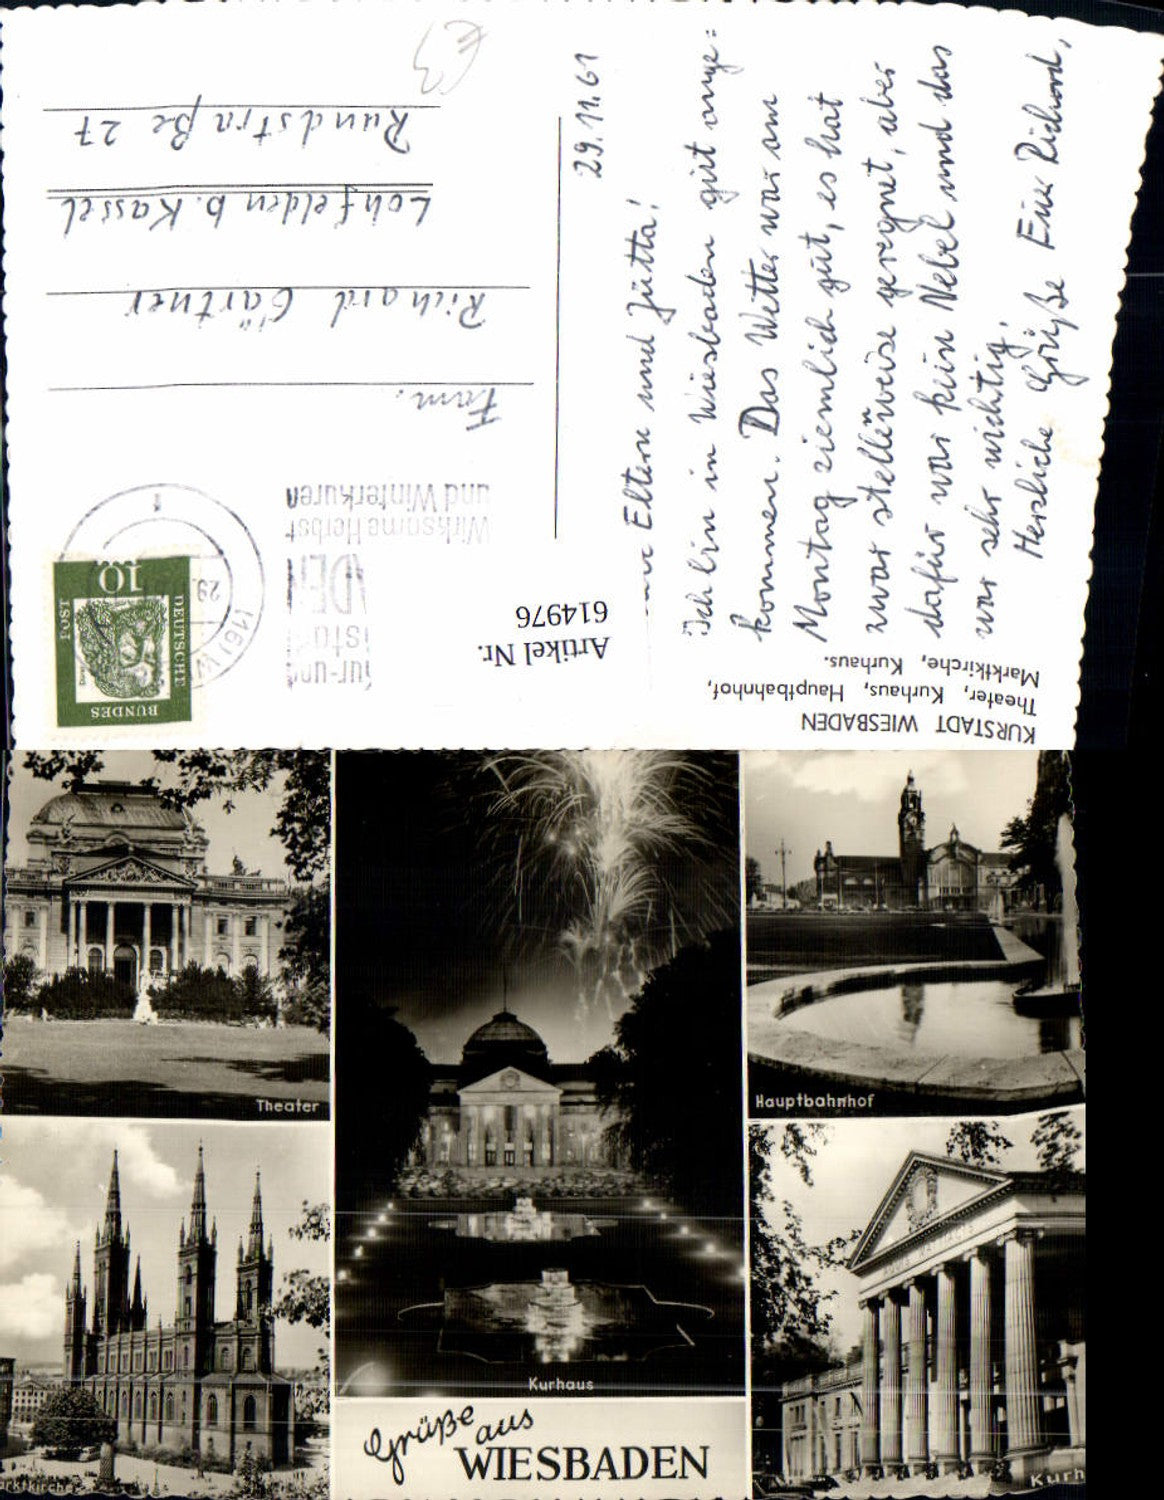 29.11.61
Eltern und Jutta!
Ich bin in Wiesbaden gut ange=
kommen. Das Wetter war am
Montag ziemlich gut, es hat
zwar stellenweise geregnet, aber
dafür war kein Nebel und das
war sehr wichtig.
Herzliche Grüße Euer Richard,
Fam.
Richard Gärtner
Lohfelden b. Kassel
Rundstraße 27
€3
DEUTSCHE
BUNDES
POST
10
29.
(16) W
1
Kur-und
isto
DEN
Wirksame Herbst
und Winterkuren
Artikel Nr.
614976
KURSTADT WIESBADEN
Theater, Kurhaus, Hauptbahnhof,
Marktkirche, Kurhaus.
Theater
Hauptbahnhof
Kurhaus
Marktkirche
Kurh
Grüße aus
WIESBADEN